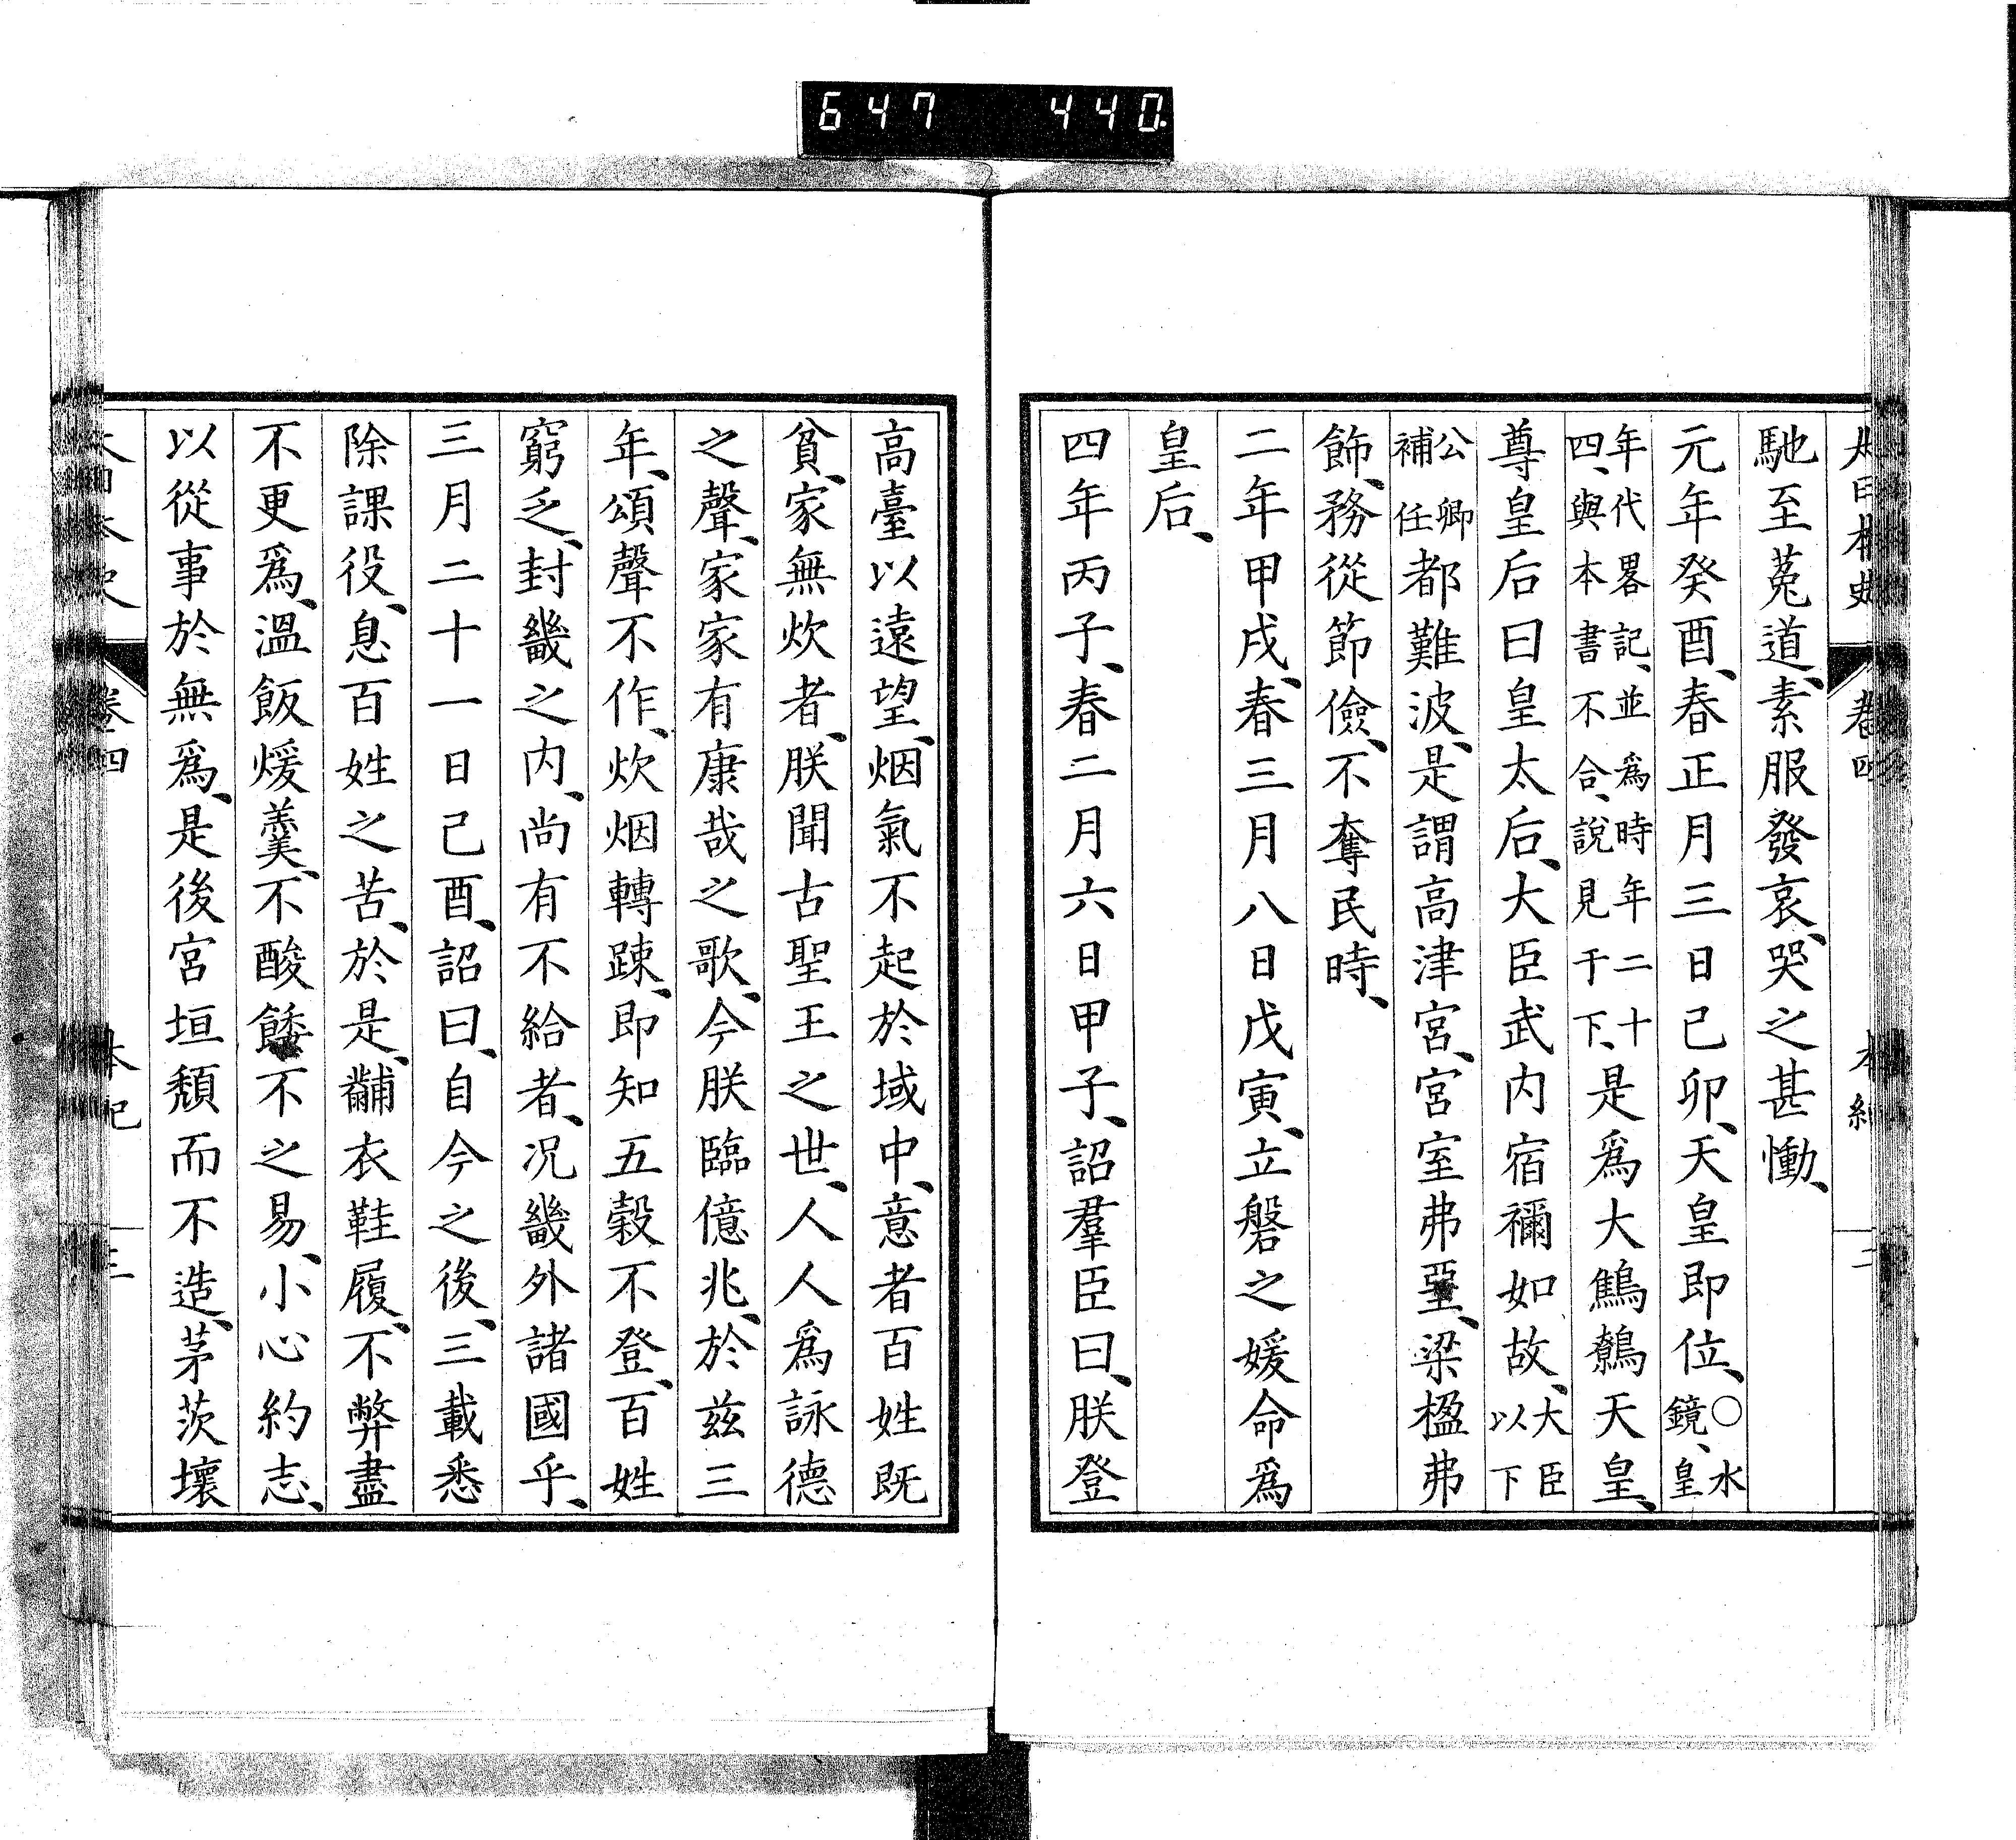 647 440
大日本史 卷四 本紀 二
馳至菟道、素服發哀、哭之甚慟、
元年癸酉、春正月三日己卯、天皇即位、○水鏡、皇
年代畧記、並爲時年二十四、與本書不合、說見于下、是爲大鷦鷯天皇、
尊皇后曰皇太后、大臣武内宿禰如故、大臣以下
公卿補任都難波、是謂高津宮、宮室弗堊、梁楹弗
飾、務從節儉、不奪民時、
二年甲戌、春三月八日戊寅、立磐之媛命爲
皇后、
四年丙子、春二月六日甲子、詔羣臣曰、朕登
高臺以遠望、烟氣不起於域中、意者百姓既
貧、家無炊者、朕聞古聖王之世、人人爲詠德
之聲、家家有康哉之歌、今朕臨億兆、於茲三
年、頌聲不作、炊烟轉踈、即知五穀不登、百姓
窮乏、封畿之内、尚有不給者、况畿外諸國乎、
三月二十一日己酉、詔曰、自今之後、三載悉
除課役、息百姓之苦、於是、黼衣鞋履、不弊盡
不更爲、溫飯煖羹、不酸餧不之易、小心約志、
以從事於無爲、是後宮垣頹而不造、茅茨壞
大日本史 卷四 本紀 三